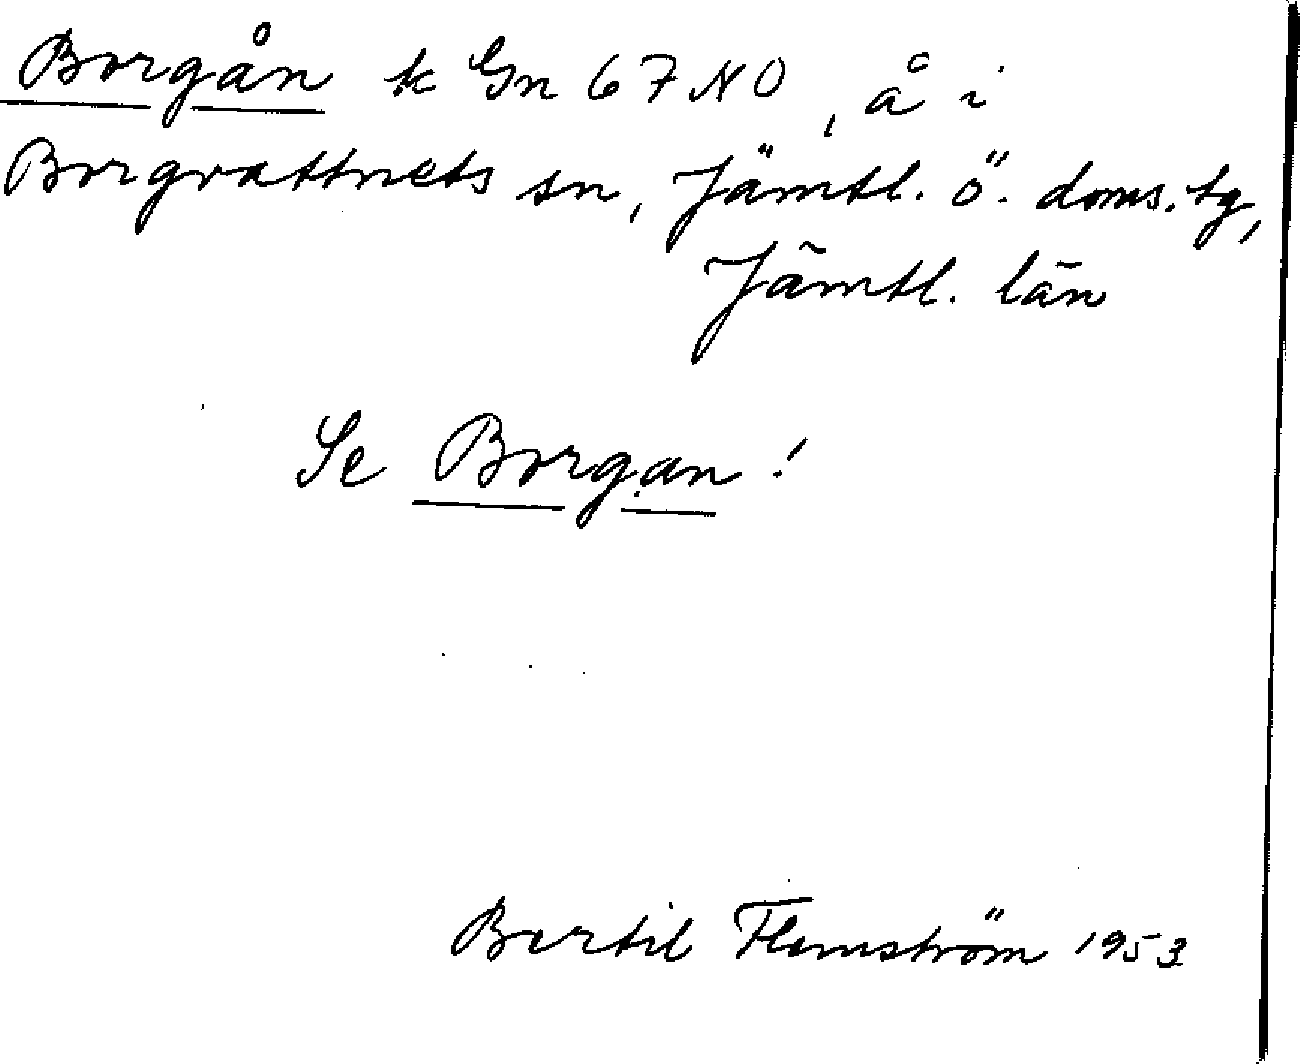 Borgån k Gn 67 NO, å i
Borgvattnets sn, Jämtl. ö. doms. tg,
Jämtl. län
Se Borgan!
Bertil Flemström 1953